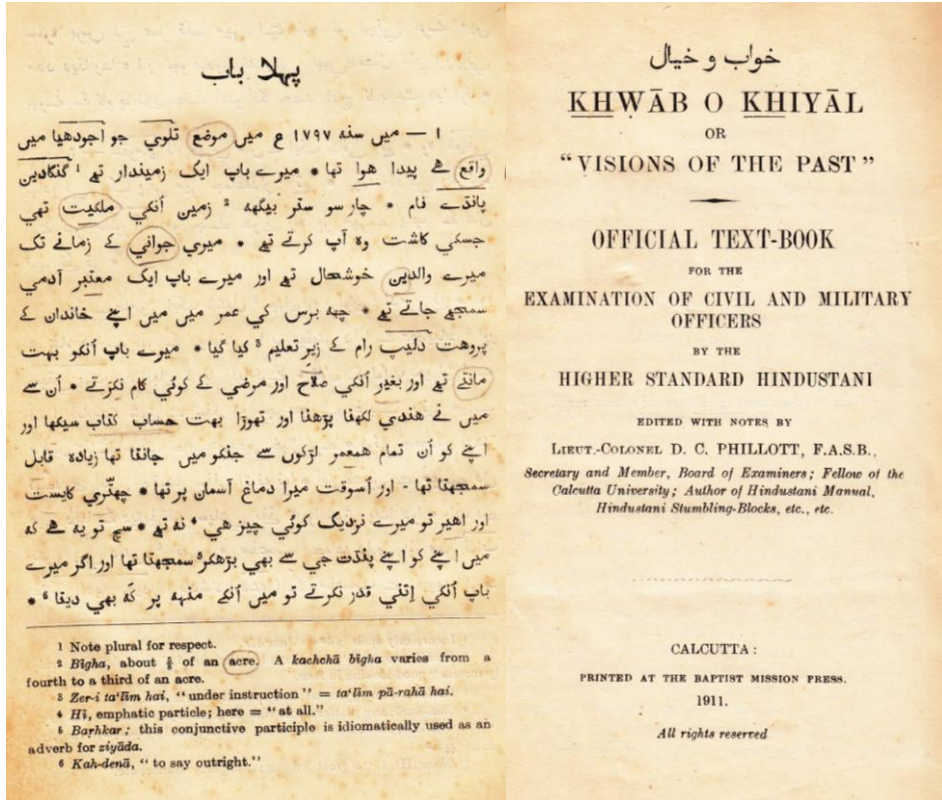 پہلا باب
۱ — میں سنہ ۱۷۹۷ ع میں موضع تلوي جو اجودھیا میں
واقع ہے پیدا ہوا تھا * میرے باپ ایک زمیندار تھے ¹ گنگادین
پانڈے نام * چار سو ستر بیگھہ ² زمین اُنکي ملکیت تھي
جسکي کاشت وہ آپ کرتے تھے * میري جواني کے زمانے تک
میرے والدین خوشحال تھے اور میرے باپ ایک معتبر آدمي
سمجھے جاتے تھے * چھہ برس کي عمر میں میں اپنے خاندان کے
پروھت دلیپ رام کے زیرِ تعلیم ³ کیا گیا * میرے باپ اُنکو بہت
مانتے تھے اور بغیر اُنکي صلاح اور مرضي کے کوئي کام نکرتے * اُن سے
میں نے ھندي لکھنا پڑھنا اور تھوڑا بہت حساب کتاب سیکھا اور
اپنے کو اُن تمام ھمعمر لڑکوں سے جنکو میں جانتا تھا زیادہ قابل
سمجھتا تھا - اور اُسوقت میرا دماغ آسمان پر تھا * چھتّري کایست
اور اھیر تو میرے نزدیک کوئي چیز ھي ⁴ نہ تھے * سچ تو یہ ہے کہ
میں اپنے کو اپنے پنڈت جي سے بھي بڑھکر⁵ سمجھتا تھا اور اگر میرے
باپ اُنکي اِتني قدر نکرتے تو میں اُنکے منہہ پر کَہ بھي دیتا ⁶ *
1 Note plural for respect.
2 Bīgha, about ⅝ of an acre. A kachchā bīgha varies from a
fourth to a third of an acre.
3 Zer-i ta‘līm hai, “under instruction” = ta‘līm pā-rahā hai.
4 Hī, emphatic particle; here = “at all.”
5 Baṛhkar; this conjunctive participle is idiomatically used as an
adverb for ziyāda.
6 Kah-denā, “to say outright.”
خواب و خیال
KHWĀB O KHIYĀL
OR
“VISIONS OF THE PAST”
OFFICIAL TEXT-BOOK
FOR THE
EXAMINATION OF CIVIL AND MILITARY
OFFICERS
BY THE
HIGHER STANDARD HINDUSTANI
EDITED WITH NOTES BY
LIEUT.-COLONEL D. C. PHILLOTT, F.A.S.B.,
Secretary and Member, Board of Examiners; Fellow of the
Calcutta University; Author of Hindustani Manual,
Hindustani Stumbling-Blocks, etc., etc.
CALCUTTA:
PRINTED AT THE BAPTIST MISSION PRESS.
1911.
All rights reserved